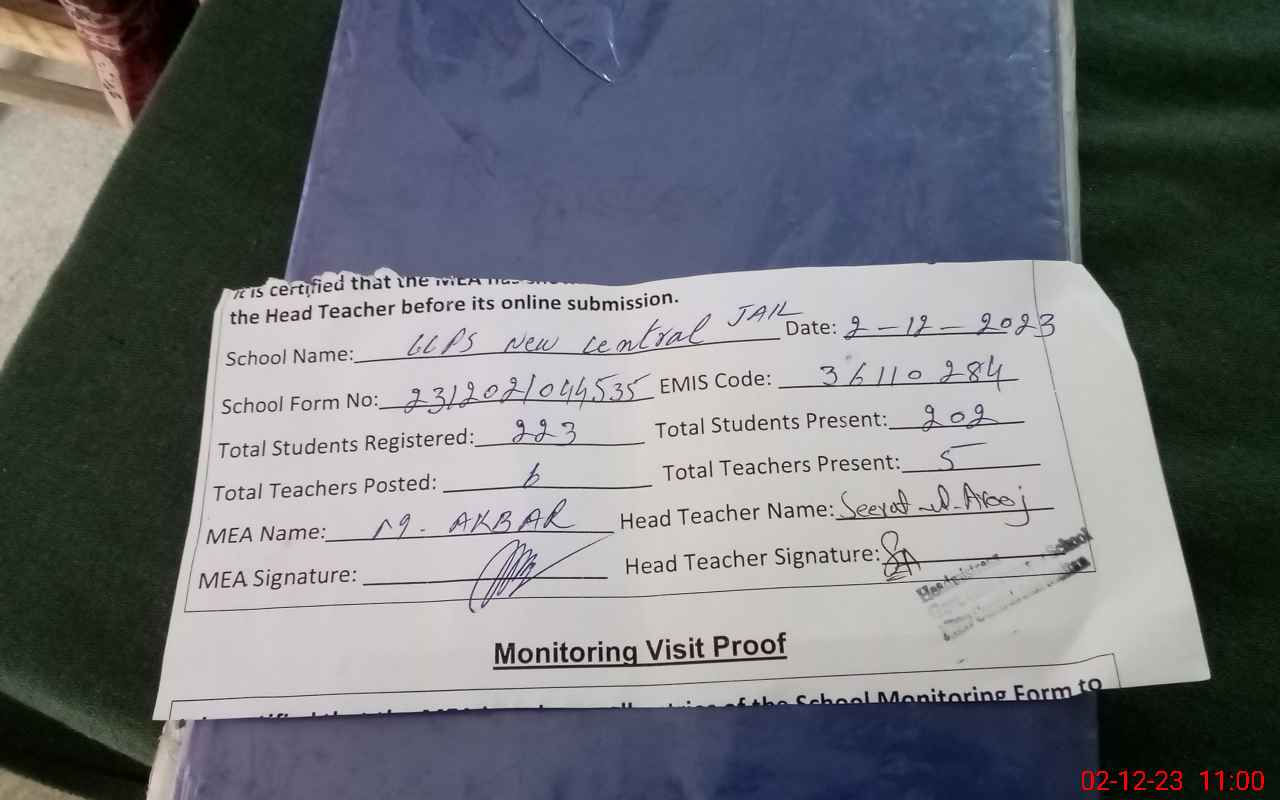 It is certified that the MEA has
the Head Teacher before its online submission.
School Name: GCPS New Central JAIL Date: 2-12-2023
School Form No: 2312021044535 EMIS Code: 36110284
Total Students Registered: 223 Total Students Present: 202
Total Teachers Posted: 6 Total Teachers Present: 5
MEA Name: M. AKBAR Head Teacher Name: Seerat-ul-Arooj
MEA Signature: Head Teacher Signature:
Headmistress School
Monitoring Visit Proof
of the School Monitoring Form to
02-12-23 11:00